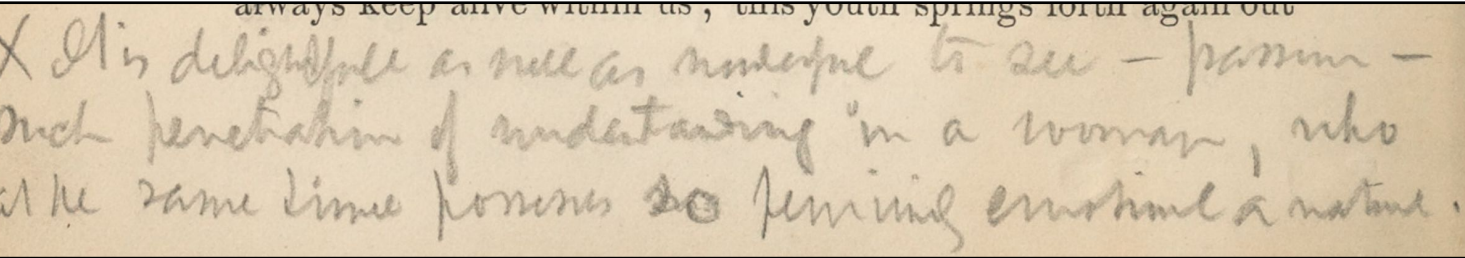 always keep alive within us ; this youth springs forth again out
X It is delightfull as well as wonderful to see — passim —
such penetration of understanding in a woman, who
at the same time possesses so feminine emotional a nature.